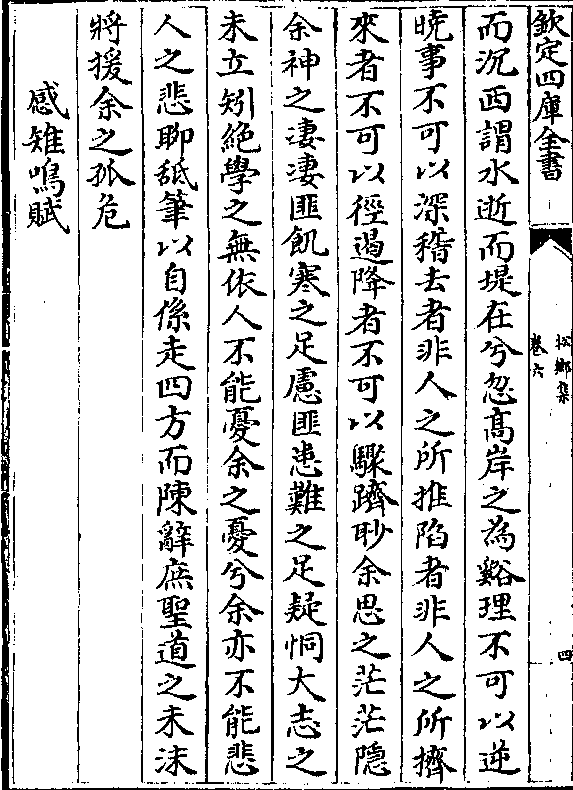 欽定四庫全書
松鄉集
卷六
四
而沉西謂水逝而堤在兮忽髙岸之為谿理不可以逆
曉事不可以深稽去者非人之所推陷者非人之所擠
來者不可以徑遏降者不可以驟躋眇余思之茫茫隱
余神之凄凄匪飢寒之足慮匪患難之足疑恫大志之
未立矧絶學之無依人不能憂余之憂兮余亦不能悲
人之悲聊舐筆以自係走四方而陳辭庶聖道之未沬
將援余之孤危
感雉鳴賦